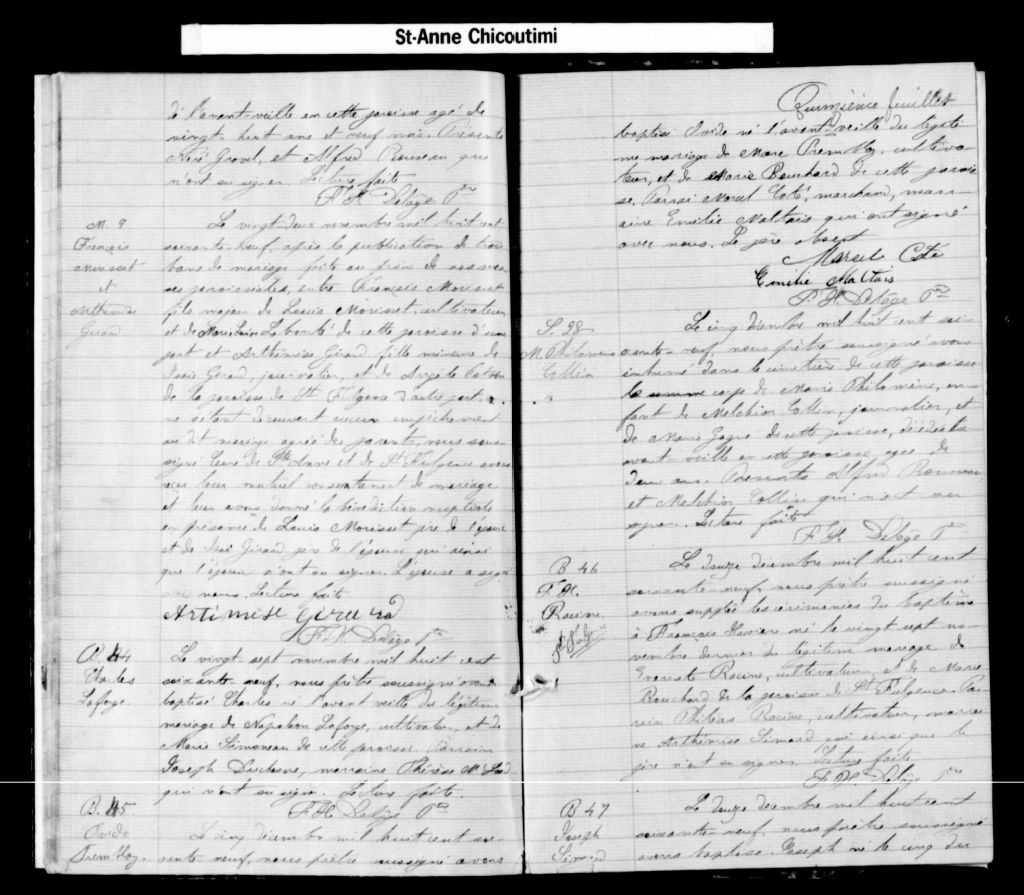 St-Anne Chicoutimi
de l'avant-veille en cette paroisse agé de
vingt huit ans et neuf mois. Présents
et Alfred Rousseau qui
n'ont su signer. Lecture faite
F. X. Delâge Ptre
M. 9
François
Morisset
et
Arthémise
Girard
Le vingt-deux novembre mil huit cent
soixante-neuf, après la publication de trois
bans de mariage faite au prône de nos mes-
ses paroissiales, entre François Morisset
fils majeur de Louis Morisset, cultivateur
et de Marie Louise Labonté de cette paroisse d'une
part et Arthémise Girard fille mineure de
Isaïe Girard, journalier, et de Angèle
de la paroisse de St Fulgence d'autre part,
ne s'étant découvert aucun empêchement
au dit mariage agréé des parents, nous sous-
signé Curé de Ste Anne et de St Fulgence avons
reçu leur mutuel consentement de mariage
et leur avons donné la bénédiction nuptiale
en présence de Louis Morisset père de l'époux
et de Isaïe Girard père de l'épouse qui ainsi
que l'époux n'ont su signer. L'épouse a signé
avec nous. Lecture faite
Artémise Girard
F. X. Delâge Ptre
B. 44
Charles
Laforge.
Le vingt-sept novembre mil huit cent
soixante-neuf, nous prêtre soussigné avons
baptisé Charles né l'avant veille du légitime
mariage de Napoléon Laforge, cultivateur, et de
Marie Simoneau de cette paroisse. Parrain
Joseph Duchesne, marraine Thérèse
qui n'ont su signer. Lecture faite.
F. X. Delâge Ptre
B. 45.
Ovide
Tremblay.
Le cinq décembre mil huit cent soi-
xante-neuf, nous prêtre soussigné avons
Quinzième feuillet
baptisé Ovide né l'avant-veille du légiti-
me mariage de Marc Tremblay, cultiva-
teur, et de Marie Bouchard de cette parois-
se. Parrain Marcel Coté, marchand, marr-
aine Emilie Maltais qui ont signé
avec nous. Le père absent
Marcel Coté
Emilie Maltais
F. X. Delâge Ptre
S. 28
M. Philomène
Collin
Le cinq décembre mil huit cent soi-
xante-neuf, nous prêtre soussigné avons
inhumé dans le cimetière de cette paroisse
le corps de Marie Philomène, en-
fant de Melchior Collin, journalier, et
de Marie Gagné de cette paroisse, décédée la
avant-veille en cette paroisse agée de
deux ans. Présents Alfred Rousseau
et Melchior Collin qui n'ont su
signer. Lecture faite
F. X. Delâge Ptre
B 46
F. X.
Racine
St Fulgence
Le douze décembre mil huit cent
soixante-neuf, nous prêtre soussigné
avons suppléé les cérémonies du baptême
à François Xavier né le vingt sept no-
vembre dernier du légitime mariage de
Evariste Racine, cultivateur, et de Marie
Bouchard de la paroisse de St Fulgence. Par-
rain Philéas Racine, cultivateur, marrai-
ne Arthémise Simard qui ainsi que le
père n'ont su signer. Lecture faite
F. X. Delâge Ptre
B 47
Joseph
Simard
Le douze décembre mil huit cent
soixante-neuf, nous prêtre soussigné
avons baptisé Joseph né le cinq du